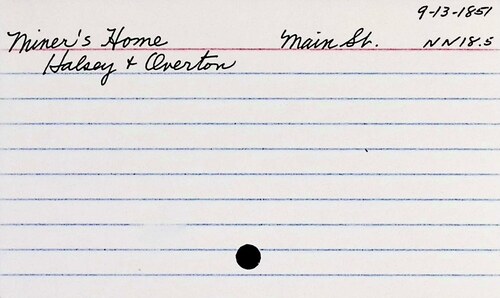 9-13-1851
Miner's Home Main St. NN18.5
Halsey & Overton